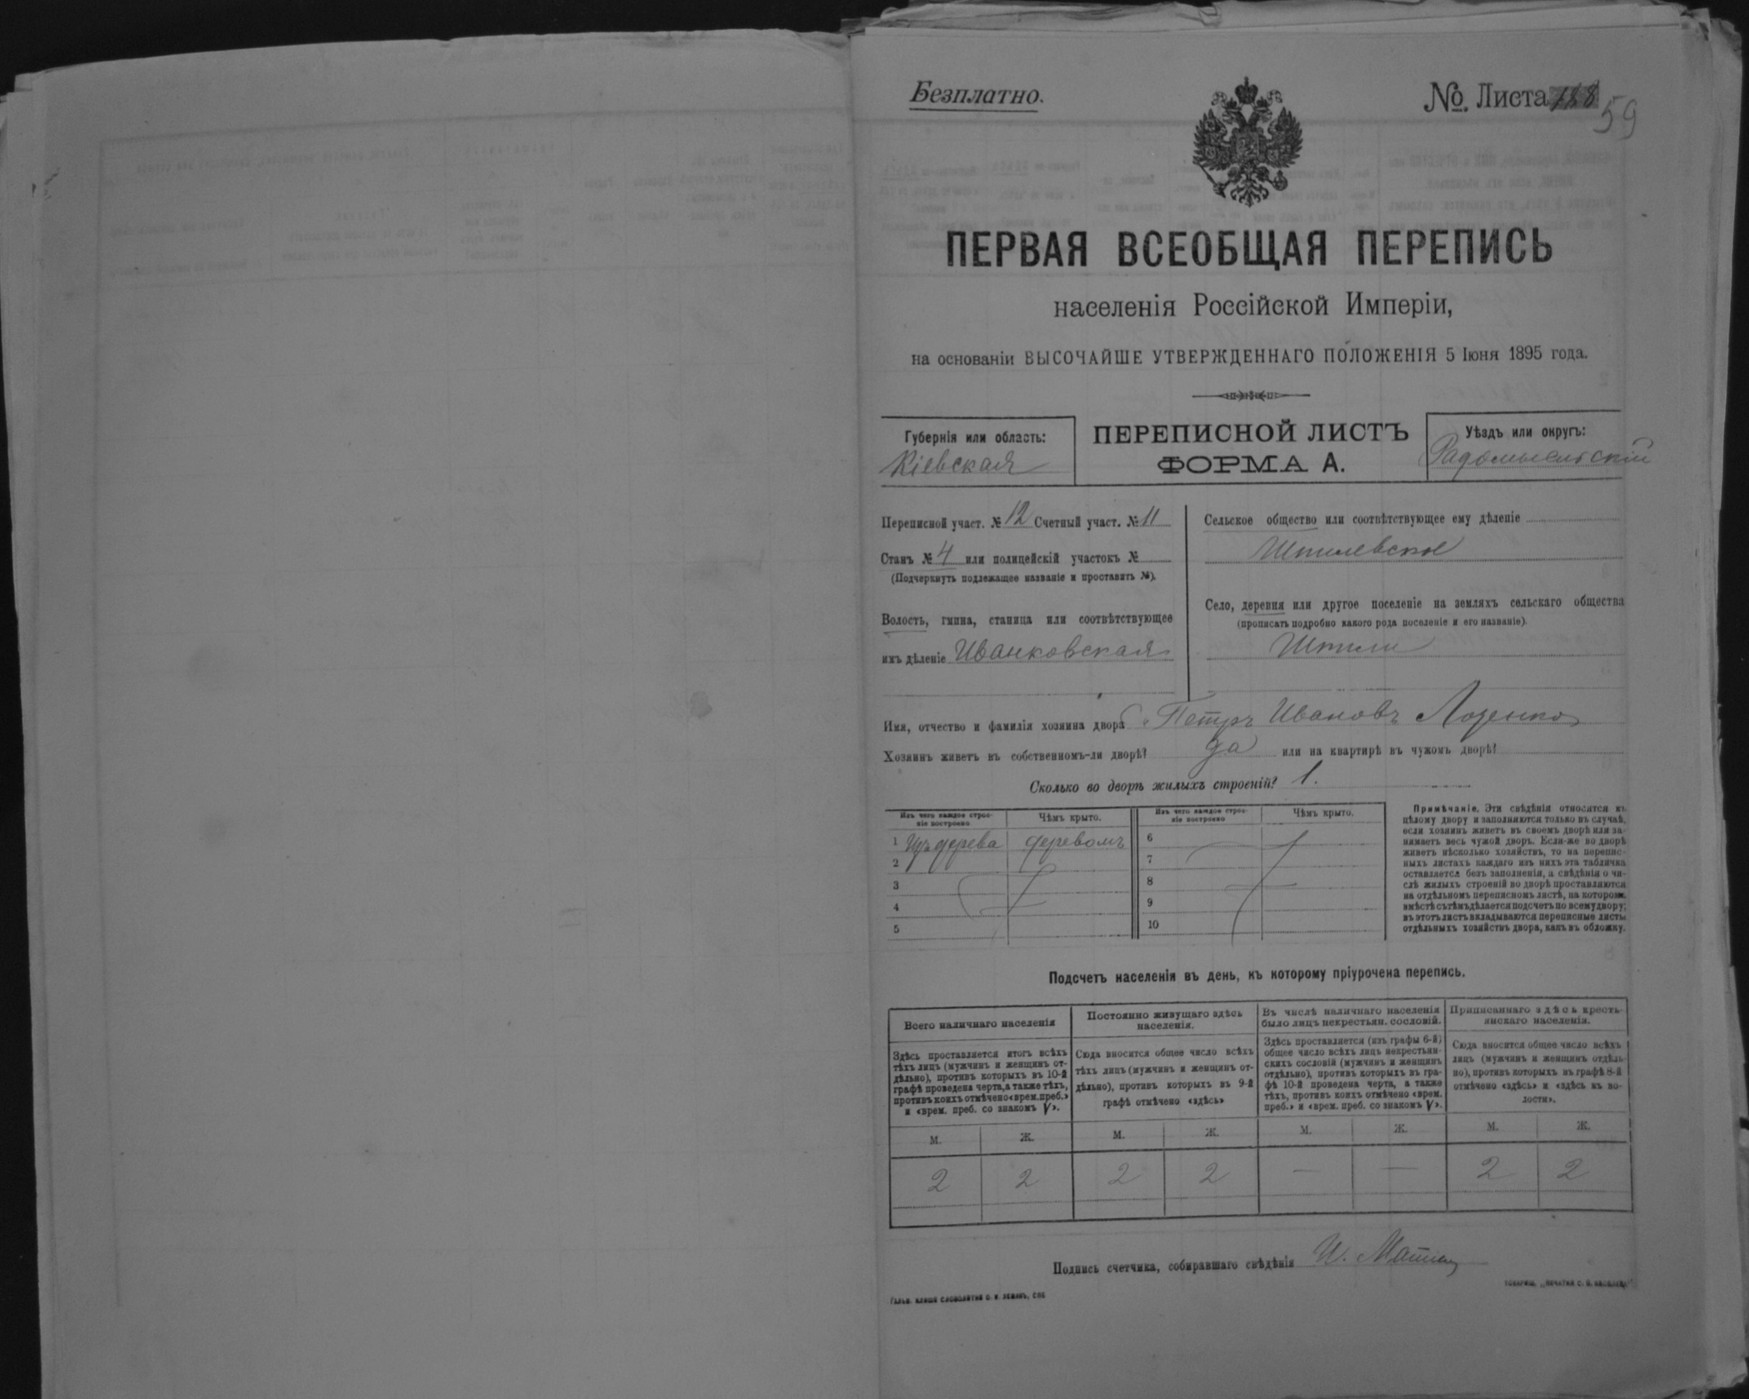 Безплатно.
№ Листа 188
59
ПЕРВАЯ ВСЕОБЩАЯ ПЕРЕПИСЬ
населенія Россійской Имперіи,
на основаніи ВЫСОЧАЙШЕ УТВЕРЖДЕННАГО ПОЛОЖЕНІЯ 5 Іюня 1895 года.
Губернія или область:
Кіевская
ПЕРЕПИСНОЙ ЛИСТЪ
ФОРМА А.
Уѣздъ или округъ:
Радомысльскій
Переписной участ. № 12 Счетный участ. № 11
Станъ № 4 или полицейскій участокъ №
(Подчеркнуть подлежащее названіе и проставить №).
Волость, гмина, станица или соотвѣтствующее
ихъ дѣленіе Иванковская
Сельское общество или соотвѣтствующее ему дѣленіе
Шпилевское
Село, деревня или другое поселеніе на земляхъ сельскаго общества
(прописать подробно какого рода поселеніе и его названіе)
Шпили
Имя, отчество и фамилія хозяина двора Петръ Ивановъ
Хозяинъ живетъ въ собственномъ-ли дворѣ? да или на квартирѣ въ чужомъ дворѣ?
Сколько во дворѣ жилыхъ строеній? 1.
Изъ чего каждое строеніе построено
Чѣмъ крыто.
Изъ чего каждое строеніе построено
Чѣмъ крыто.
1 Изъ дерева деревомъ
2
3
4
5
6
7
8
9
10
Примѣчаніе. Эти свѣдѣнія относятся къ
цѣлому двору и заполняются только въ случаѣ,
если хозяинъ живетъ въ своемъ дворѣ или за-
нимаетъ весь чужой дворъ. Если-же во дворѣ
живетъ нѣсколько хозяйствъ, то на перепис-
ныхъ листахъ каждаго изъ нихъ эта табличка
оставляется безъ заполненія, а свѣдѣнія о чи-
слѣ жилыхъ строеній во дворѣ проставляются
на отдѣльномъ переписномъ листѣ, на которомъ
вмѣстѣ съ тѣмъ дѣлается подсчетъ по всему двору;
въ этотъ листъ вкладываются переписные листы
отдѣльныхъ хозяйствъ двора, какъ въ обложку.
Подсчетъ населенія въ день, къ которому пріурочена перепись.
Всего наличнаго населенія
Здѣсь проставляется итогъ всѣхъ
тѣхъ лицъ (мужчинъ и женщинъ от-
дѣльно), противъ которыхъ въ 10-й
графѣ проведена черта, а также тѣхъ,
противъ коихъ отмѣчено «врем. преб.»
и «врем. преб. со знакомъ V».
Постоянно живущаго здѣсь
населенія.
Сюда вносится общее число всѣхъ
тѣхъ лицъ (мужчинъ и женщинъ от-
дѣльно), противъ которыхъ въ 9-й
графѣ отмѣчено «здѣсь»
Въ числѣ наличнаго населенія
было лицъ некрестьян. сословій.
Здѣсь проставляется (изъ графы 6-й)
общее число всѣхъ лицъ некрестьян-
скихъ сословій (мужчинъ и женщинъ
отдѣльно), противъ которыхъ въ гра-
фѣ 10-й проведена черта, а также
тѣхъ, противъ коихъ отмѣчено «врем.
преб.» и «врем. преб. со знакомъ V».
Приписаннаго здѣсь кресть-
янскаго населенія.
Сюда вносится общее число всѣхъ
лицъ (мужчинъ и женщинъ отдѣль-
но), противъ которыхъ въ графѣ 8-й
отмѣчено «здѣсь» и «здѣсь въ во-
лости».
М. Ж. М. Ж. М. Ж. М. Ж.
2 2 2 2 — — 2 2
Подпись счетчика, собиравшаго свѣдѣнія И.